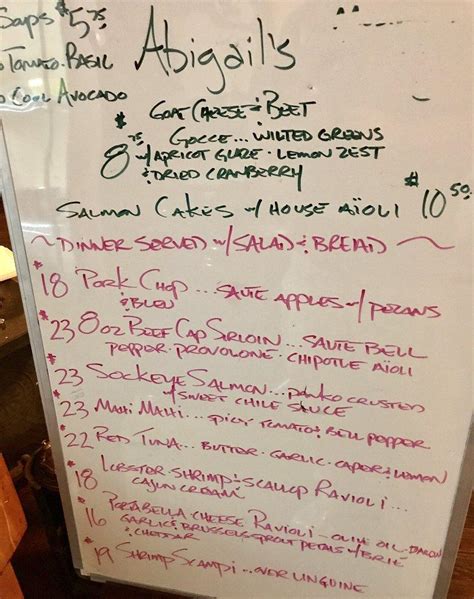 Soups $5.75
Tomato. Basil
Cool Avocado
Abigail's
Goat Cheese & Beet
$
Gocce... wilted greens
8.75 w/ Apricot Glaze. Lemon zest
& Dried Cranberry
Salmon Cakes w/ House Aïoli $10.50
~Dinner Served w/ Salad & Bread~
$18 Pork Chop... Saute Apples w/ Pecans
& Bleu
$23 8oz Beef Cap Sirloin... Saute Bell
Pepper. Provolone. Chipotle Aïoli
$23 Sockeye Salmon... Panko Crusted
w/ Sweet Chile Sauce
$23 Mahi Mahi... Spicy Tomato & Bell Pepper
$22 Red Tuna... Butter. Garlic. Caper & Lemon
$18 Lobster. Shrimp & Scallop Ravioli...
Cajun Cream
$16 Portabella-Cheese Ravioli - Olive oil - Bacon
Garlic & Brussels sprout petals w/ Brie
& Cheddar
$19 Shrimp Scampi... over Linguine